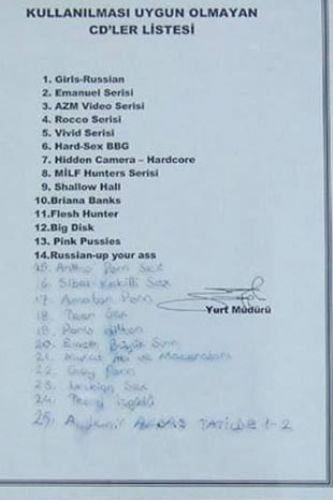 KULLANILMASI UYGUN OLMAYAN
CD'LER LİSTESİ
1. Girls-Russian
2. Emanuel Serisi
3. AZM Video Serisi
4. Rocco Serisi
5. Vivid Serisi
6. Hard-Sex BBG
7. Hidden Camera – Hardcore
8. MİLF Hunters Serisi
9. Shallow Hall
10.Briana Banks
11.Flesh Hunter
12.Big Disk
13. Pink Pussies
14.Russian-up your ass
15. Porn Sex
16. Sibel Kekilli Sex
17. Amatör Porn
Yurt Müdürü
18. Sex
19. Paris Hilton
20.
21. ve Maceraları
22. Gay Porn
23. Lezbiyen Sex
24.
25. TATİLDE 1-2